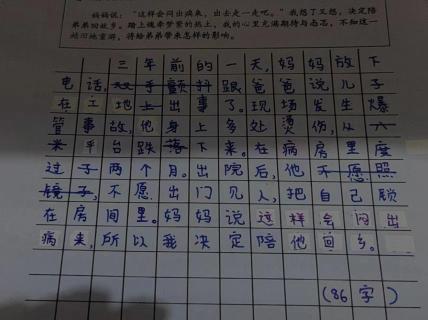 妈妈说："这样会闷出病来，出去走一走吧。"我想了又想，决定陪
弟弟回故乡。踏上魂牵梦萦的热土，我的心里充满期待与忐忑，不知这一
趟旧地重游，将给弟弟带来怎样的影响。
三年前的一天，妈妈放下
电话，双手颤抖跟爸爸说儿子
在工地上出事了。现场发生爆
管事故，他身上多处烫伤，从六
米平台跌落下来。在病房里度
过了两个月。出院后，他不愿照
镜子，不愿出门见人，把自己锁
在房间里。妈妈说这样会闷出
病来，所以我决定陪他回乡。
（86字）